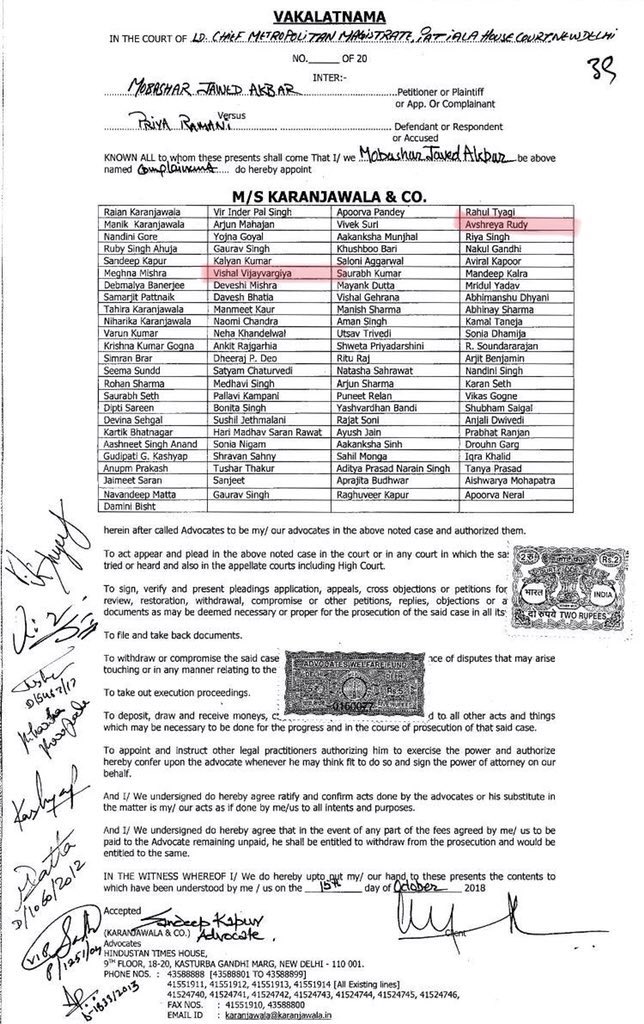 VAKALATNAMA
IN THE COURT OF LD. CHIEF METROPOLITAN MAGISTRATE, PATIALA HOUSE COURT, NEW DELHI
NO. OF 20
39
INTER:-
MOBASHAR JAWED AKBAR Petitioner or Plaintiff
or App. Or Complainant
Versus
PRIYA RAMANI Defendant or Respondent
or Accused
KNOWN ALL to whom these presents shall come That I/ we Mobashar Jawed Akbar be above
named Complainant do hereby appoint
M/S KARANJAWALA & CO.
Raian Karanjawala Vir Inder Pal Singh Apoorva Pandey Rahul Tyagi
Manik Karanjawala Arjun Mahajan Vivek Suri Avshreya Rudy
Nandini Gore Yojna Goyal Aakanksha Munjhal Riya Singh
Ruby Singh Ahuja Gaurav Singh Khushboo Bari Nakul Gandhi
Sandeep Kapur Kalyan Kumar Saloni Aggarwal Aviral Kapoor
Meghna Mishra Vishal Vijayvargiya Saurabh Kumar Mandeep Kalra
Debmalya Banerjee Deveshi Mishra Mayank Dutta Mridul Yadav
Samarjit Pattnaik Davesh Bhatia Vishal Gehrana Abhimanshu Dhyani
Tahira Karanjawala Manmeet Kaur Manish Sharma Abhinay Sharma
Niharika Karanjawala Naomi Chandra Aman Singh Kamal Taneja
Varun Kumar Neha Khandelwal Utsav Trivedi Sonia Dhamija
Krishna Kumar Gogna Ankit Rajgarhia Shweta Priyadarshini R. Soundararajan
Simran Brar Dheeraj P. Deo Ritu Raj Arjit Benjamin
Seema Sundd Satyam Chaturvedi Natasha Sahrawat Nandini Singh
Rohan Sharma Medhavi Singh Arjun Sharma Karan Seth
Saurabh Seth Pallavi Kampani Puneet Relan Vikas Gogne
Dipti Sareen Bonita Singh Yashvardhan Bandi Shubham Saigal
Devina Sehgal Sushil Jethmalani Rajat Soni Anjali Dwivedi
Kartik Bhatnagar Hari Madhav Saran Rawat Ayush Jain Prabhat Ranjan
Aashneet Singh Anand Sonia Nigam Aakanksha Sinh Drouhn Garg
Gudipati G. Kashyap Shravan Sahny Sahil Monga Iqra Khalid
Anupm Prakash Tushar Thakur Aditya Prasad Narain Singh Tanya Prasad
Jaimeet Saran Sanjeet Aprajita Budhwar Aishwarya Mohapatra
Navandeep Matta Gaurav Singh Raghuveer Kapur Apoorva Neral
Damini Bisht
herein after called Advocates to be my/ our advocates in the above noted case and authorized them.
To act appear and plead in the above noted case in the court or in any court in which the sa
tried or heard and also in the appellate courts including High Court.
To sign, verify and present pleadings application, appeals, cross objections or petitions for
review, restoration, withdrawal, compromise or other petitions, replies, objections or a
documents as may be deemed necessary or proper for the prosecution of the said case in all its
Rs.2
भारत INDIA
दो रुपये TWO RUPEES
To file and take back documents.
To withdraw or compromise the said case nce of disputes that may arise
touching or in any manner relating to the
ADVOCATES WELFARE FUND
0160027
To take out execution proceedings.
To deposit, draw and receive moneys, c d to all other acts and things
which may be necessary to be done for the progress and in the course of prosecution of that said case.
To appoint and instruct other legal practitioners authorizing him to exercise the power and authorize
hereby confer upon the advocate whenever he may think fit to do so and sign the power of attorney on our
behalf.
And I/ We undersigned do hereby agree ratify and confirm acts done by the advocates or his substitute in
the matter is my/ our acts as if done by me/us to all intents and purposes.
And I/ We undersigned do hereby agree that in the event of any part of the fees agreed by me/ us to be
paid to the Advocate remaining unpaid, he shall be entitled to withdraw from the prosecution and would
be entitled to the same.
IN THE WITNESS WHEREOF I/ We do hereby upto put my/ our hand to these presents the contents to
which have been understood by me / us on the 15th day of October 2018
Accepted
Sandeep Kapur
(KARANJAWALA & CO.) Advocate.
Client
Advocates
HINDUSTAN TIMES HOUSE,
9TH FLOOR, 18-20, KASTURBA GANDHI MARG, NEW DELHI - 110 001.
PHONE NOS. : 43588888 [43588801 TO 43588899]
41551911, 41551912, 41551913, 41551914 [All Existing lines]
41524740, 41524741, 41524742, 41524743, 41524744, 41524745, 41524746,
FAX NOS. : 41551910, 43588800
EMAIL ID : karanjawala@karanjawala.in
Kashyap
Datta
D/1060/2012
D-1833/2013